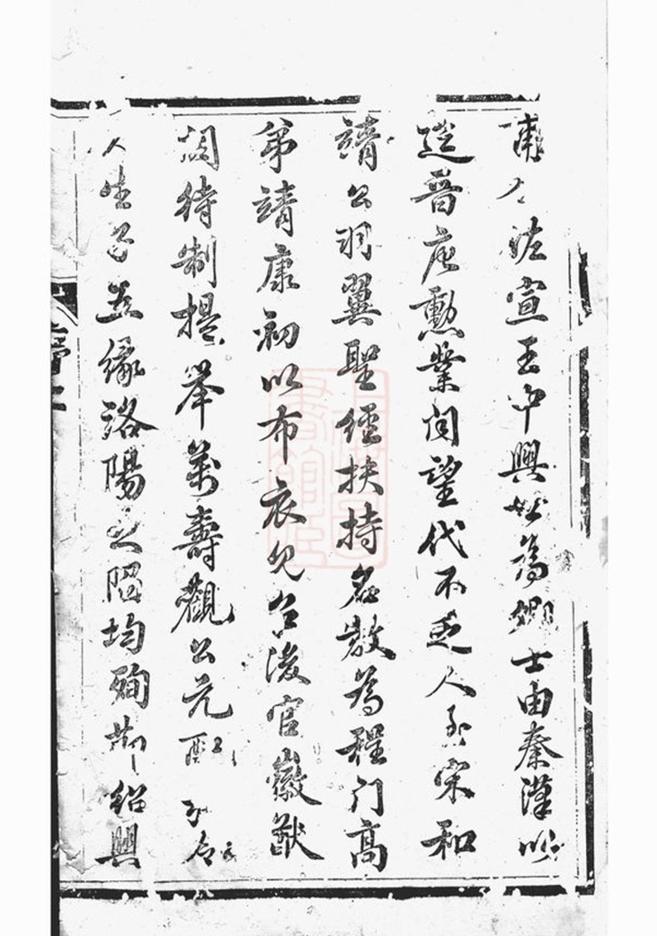 甫 佐宣王中興世為卿士由秦漢以
迄晉唐勳業聞望代不乏人至宋和
靖公羽翼聖經扶持名教為程門高
弟靖康初以布衣見召後官徽猷
閣待制提舉萬壽觀公元配 令
人生子五緣洛陽之陷均殉節紹興